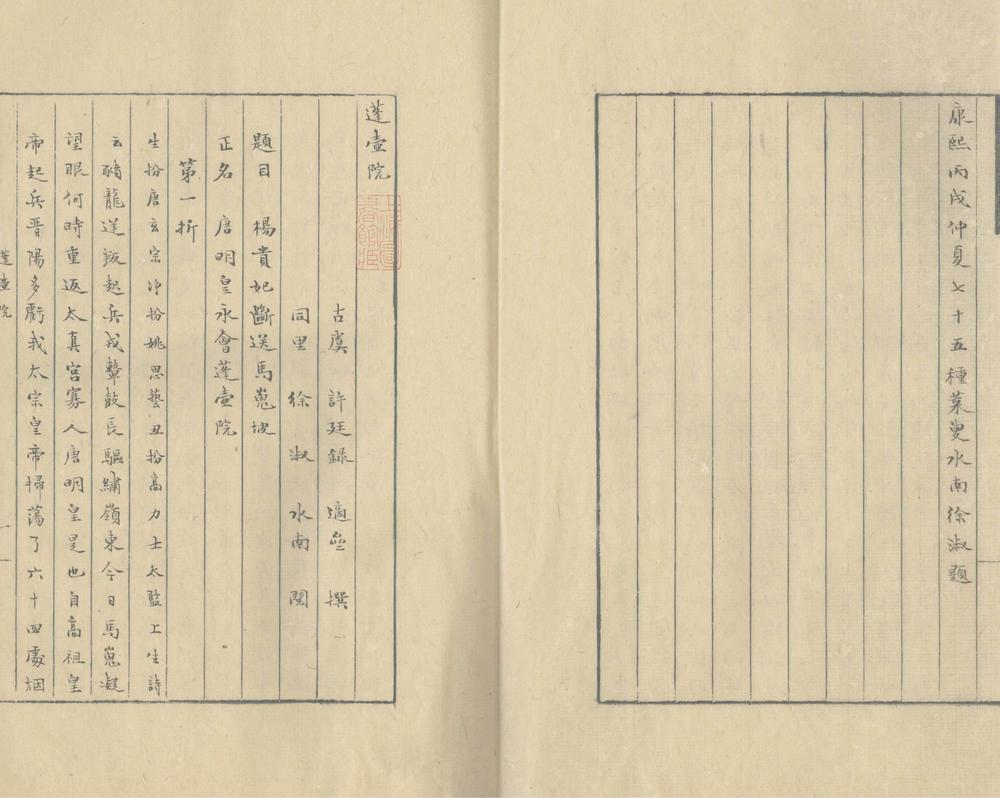 康熙丙戌仲夏七十五種菓叟水南徐淑題
蓬壺院
古虞 許廷録 適齋 撰
同里 徐淑 水南 閱
題目 楊貴妃斷送馬嵬坡
正名 唐明皇永會蓬壺院
第一折
生扮唐玄宗净扮姚思藝丑扮高力士太監上生詩
云豬龍逆叛起兵戎鼙鼓長驅繡嶺東今日馬嵬凝
望眼何時重返太真宮寡人唐明皇是也自高祖皇
帝起兵晋陽多虧我太宗皇帝掃蕩了六十四處烟
蓬壺院
一